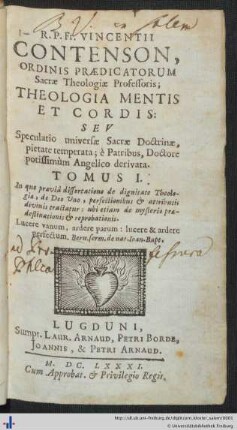 R.P.Fr. VINCENTII
CONTENSON,
ORDINIS PRÆDICATORUM
Sacræ Theologiæ Professoris;
THEOLOGIA MENTIS
ET CORDIS:
SEV
Speculatio universæ Sacræ Doctrinæ,
pietate temperata; è Patribus, Doctore
potissimùm Angelico derivata.
TOMUS I.
In quo præviâ dissertatione de dignitate Theologiæ,
de Deo Uno, perfectionibus & attributis
divinis tractatur: ubi etiam de mysterio prædestinationis
& reprobationis.
Lucere vanum, ardere parum: lucere & ardere
perfectum. Bern. serm. de nat. Ioan. Bapt.
LUGDUNI,
Sumpt. LAUR. ARNAUD, PETRI BORDE,
JOANNIS, & PETRI ARNAUD.
M. DC. LXXXI.
Cum Approbat. & Privilegio Regis.
© Universitätsbibliothek Freiburg